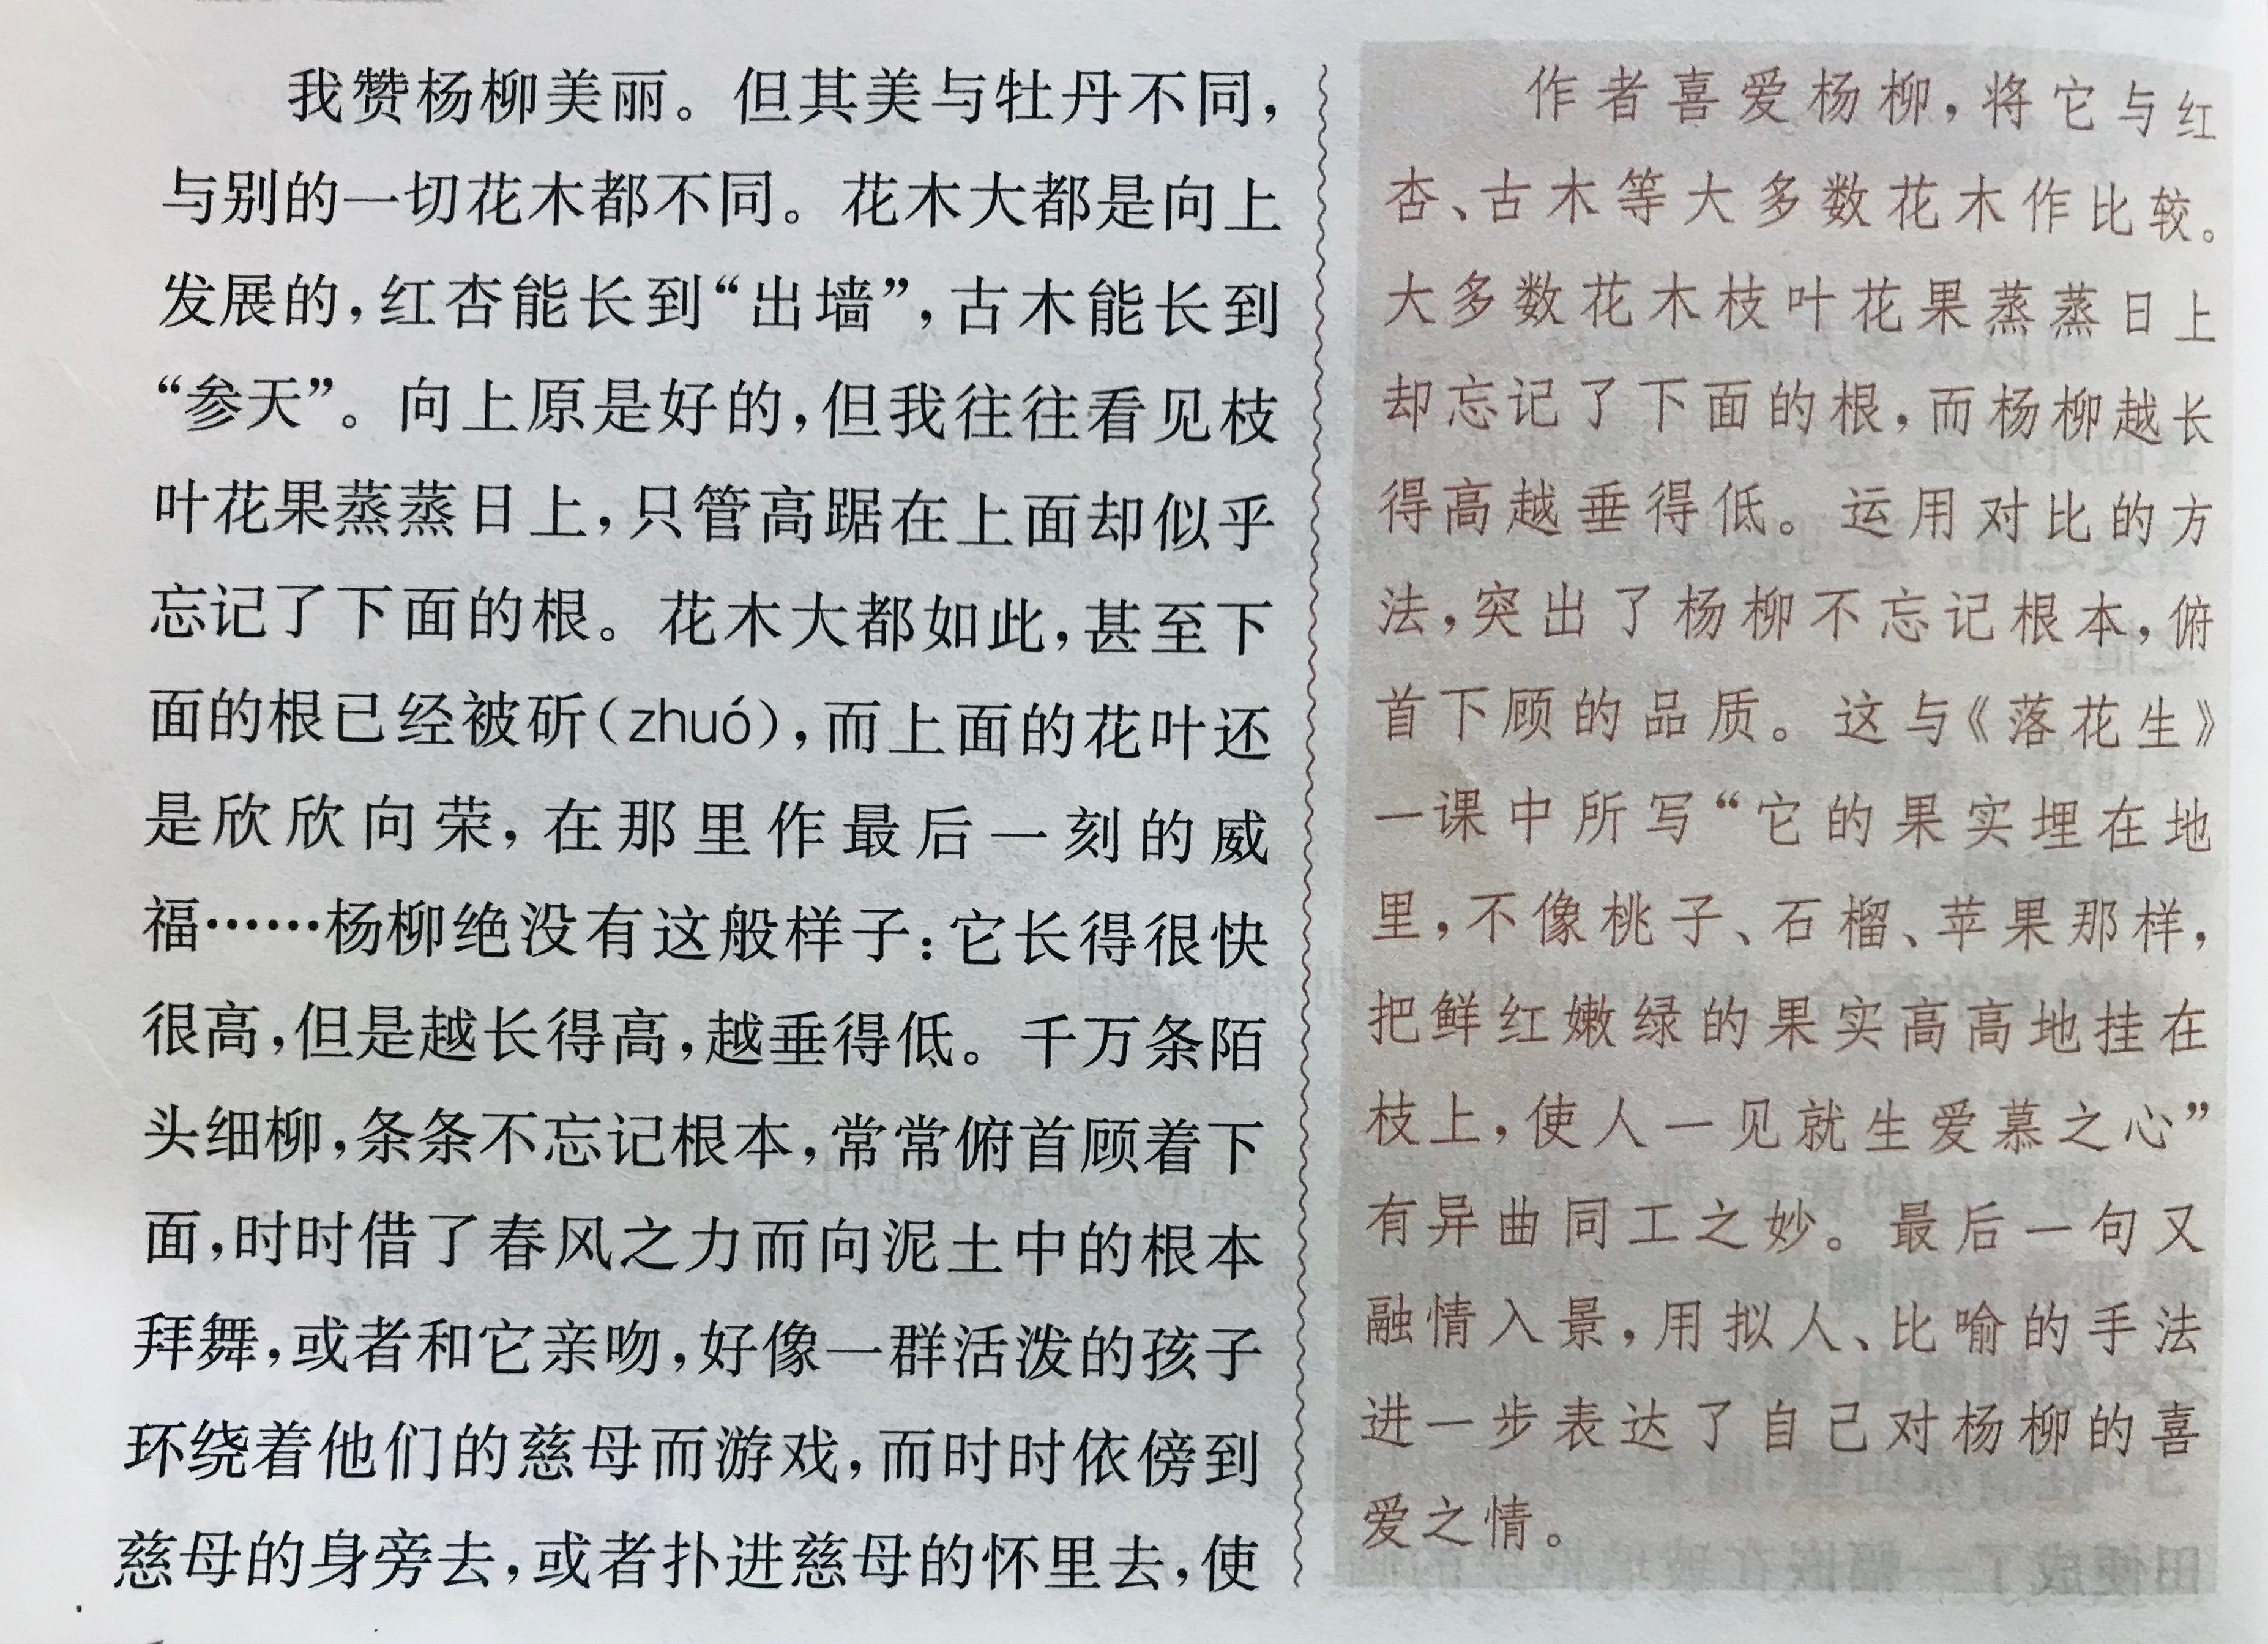 我赞杨柳美丽。但其美与牡丹不同，
与别的一切花木都不同。花木大都是向上
发展的，红杏能长到“出墙”，古木能长到
“参天”。向上原是好的，但我往往看见枝
叶花果蒸蒸日上，只管高踞在上面却似乎
忘记了下面的根。花木大都如此，甚至下
面的根已经被斫（zhuó），而上面的花叶还
是欣欣向荣，在那里作最后一刻的威
福……杨柳绝没有这般样子：它长得很快
很高，但是越长得高，越垂得低。千万条陌
头细柳，条条不忘记根本，常常俯首顾着下
面，时时借了春风之力而向泥土中的根本
拜舞，或者和它亲吻，好像一群活泼的孩子
环绕着他们的慈母而游戏，而时时依傍到
慈母的身旁去，或者扑进慈母的怀里去，使
作者喜爱杨柳，将它与红
杏、古木等大多数花木作比较。
大多数花木枝叶花果蒸蒸日上
却忘记了下面的根，而杨柳越长
得高越垂得低。运用对比的方
法，突出了杨柳不忘记根本，俯
首下顾的品质。这与《落花生》
一课中所写“它的果实埋在地
里，不像桃子、石榴、苹果那样，
把鲜红嫩绿的果实高高地挂在
枝上，使人一见就生爱慕之心”
有异曲同工之妙。最后一句又
融情入景，用拟人、比喻的手法
进一步表达了自己对杨柳的喜
爱之情。